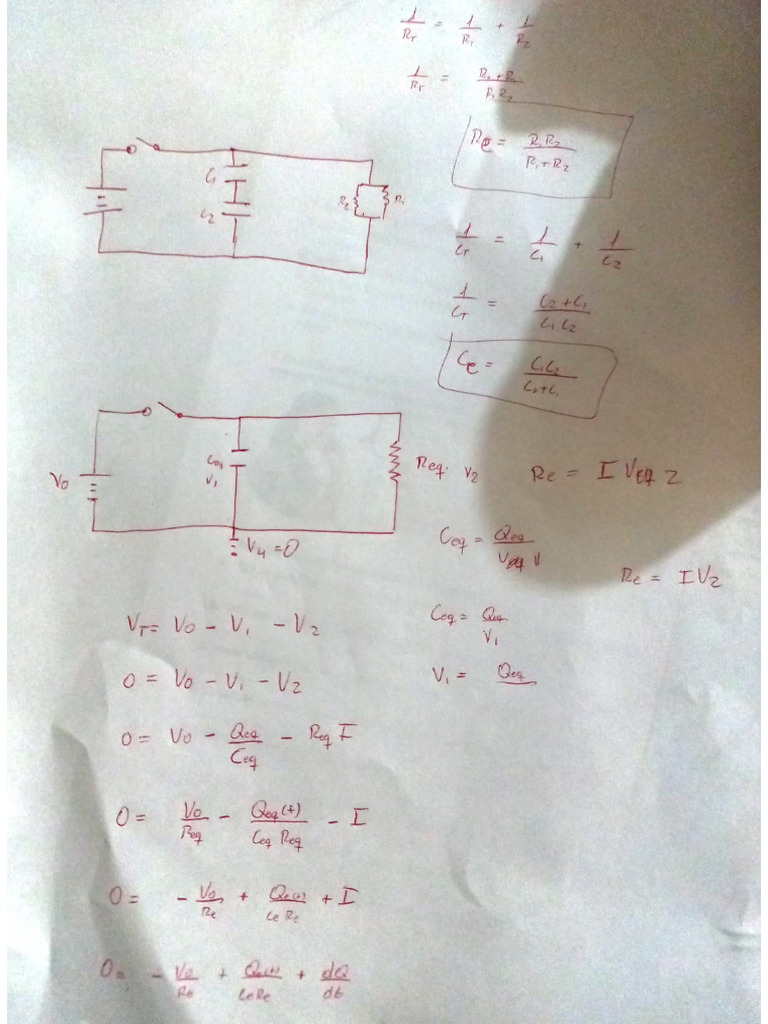 1/R_T = 1/R_1 + 1/R_2
1/R_T = R_2 + R_1 / R_1 R_2
R_e = R_1 R_2 / R_1 + R_2
C_1
C_2
R_2
R_1
1/C_T = 1/C_1 + 1/C_2
1/C_T = C_2 + C_1 / C_1 C_2
C_e = C_1 C_2 / C_2 + C_1
V_0
C_eq
V_1
R_eq. V_2
V_4 = 0
R_e = I V_eq 2
C_eq = Q_eq / V
R_e = I V_2
C_eq = Q_eq / V_1
V_1 = Q_eq /
V_T = V_0 - V_1 - V_2
0 = V_0 - V_1 - V_2
0 = V_0 - Q_eq / C_eq - R_eq I
0 = V_0 / R_eq - Q_eq(t) / C_eq R_eq - I
0 = - V_0 / R_e + Q_e(t) / C_e R_e + I
0 = - V_0 / R_e + Q_e(t) / C_e R_e + dQ / dt